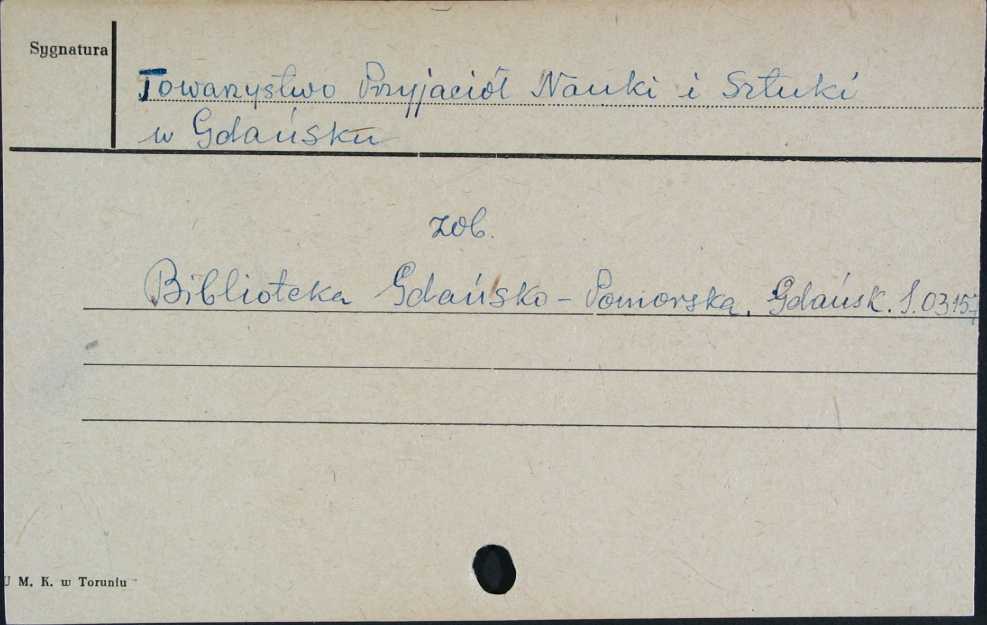 Sygnatura
Towarzystwo Przyjaciół Nauki i Sztuki
w Gdańsku
zob.
Biblioteka Gdańsko-Pomorska. Gdańsk. S.03157
U M. K. w Toruniu